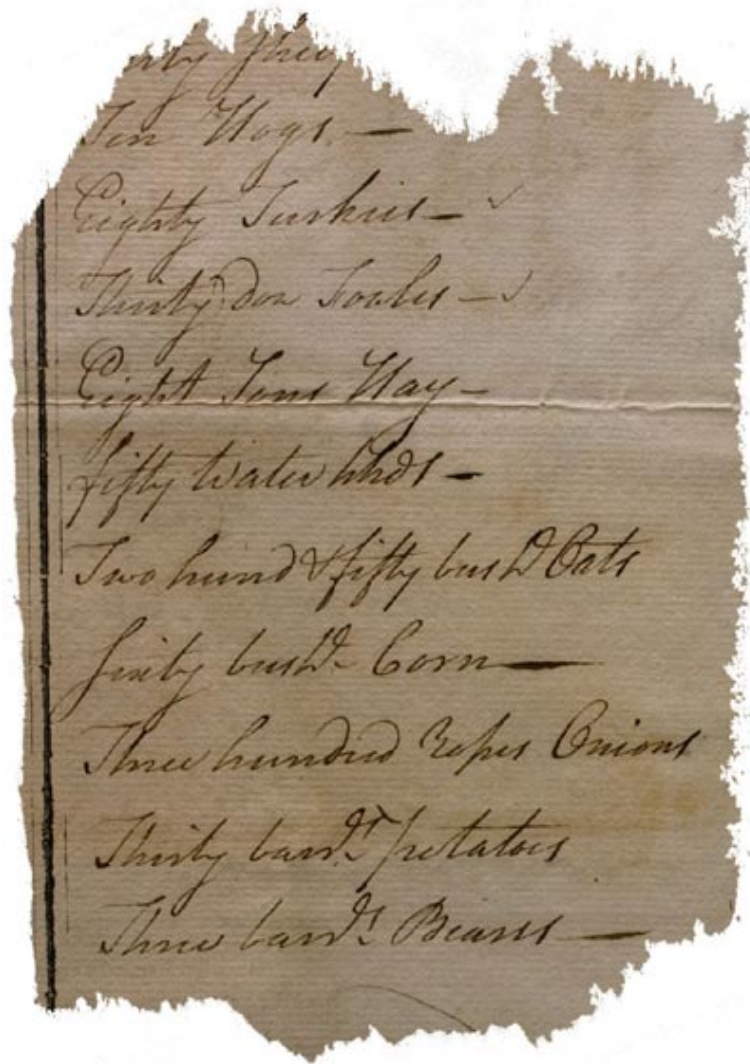 Ten Hogs —
Eighty Turkies —
Thirty doz Fowles —
Eight Tons Hay —
fifty water hhds —
Two hund & fifty bushls Oats
Sixty bushls Corn —
Three hundred Ropes Onions
Thirty barrls potatoes
Three barrls Beans —